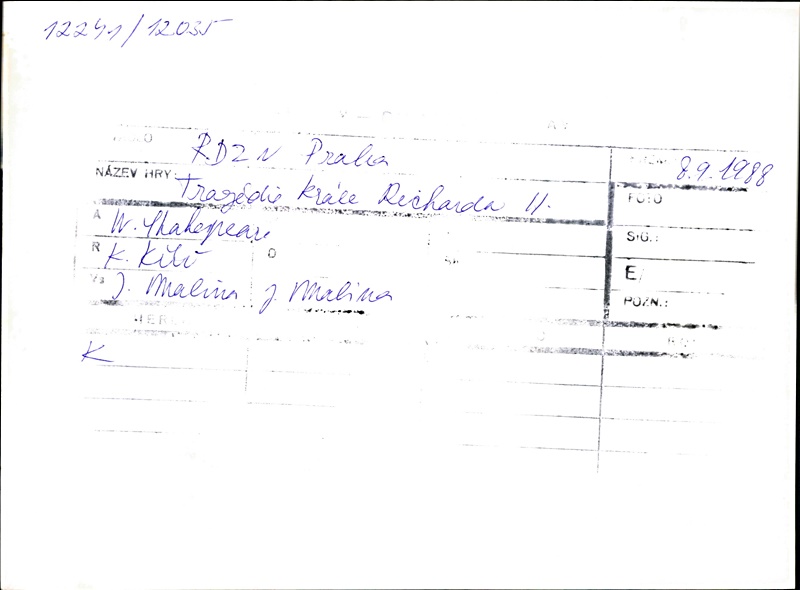 12241/12035
RDZN Praha
8.9.1988
NÁZEV HRY Tragédie krále Richarda II.
FOTO
A W. Shakespeare
SIG.:
R K. Kříž D
E/
J. Malina J. Malina
POZN.:
HER
K